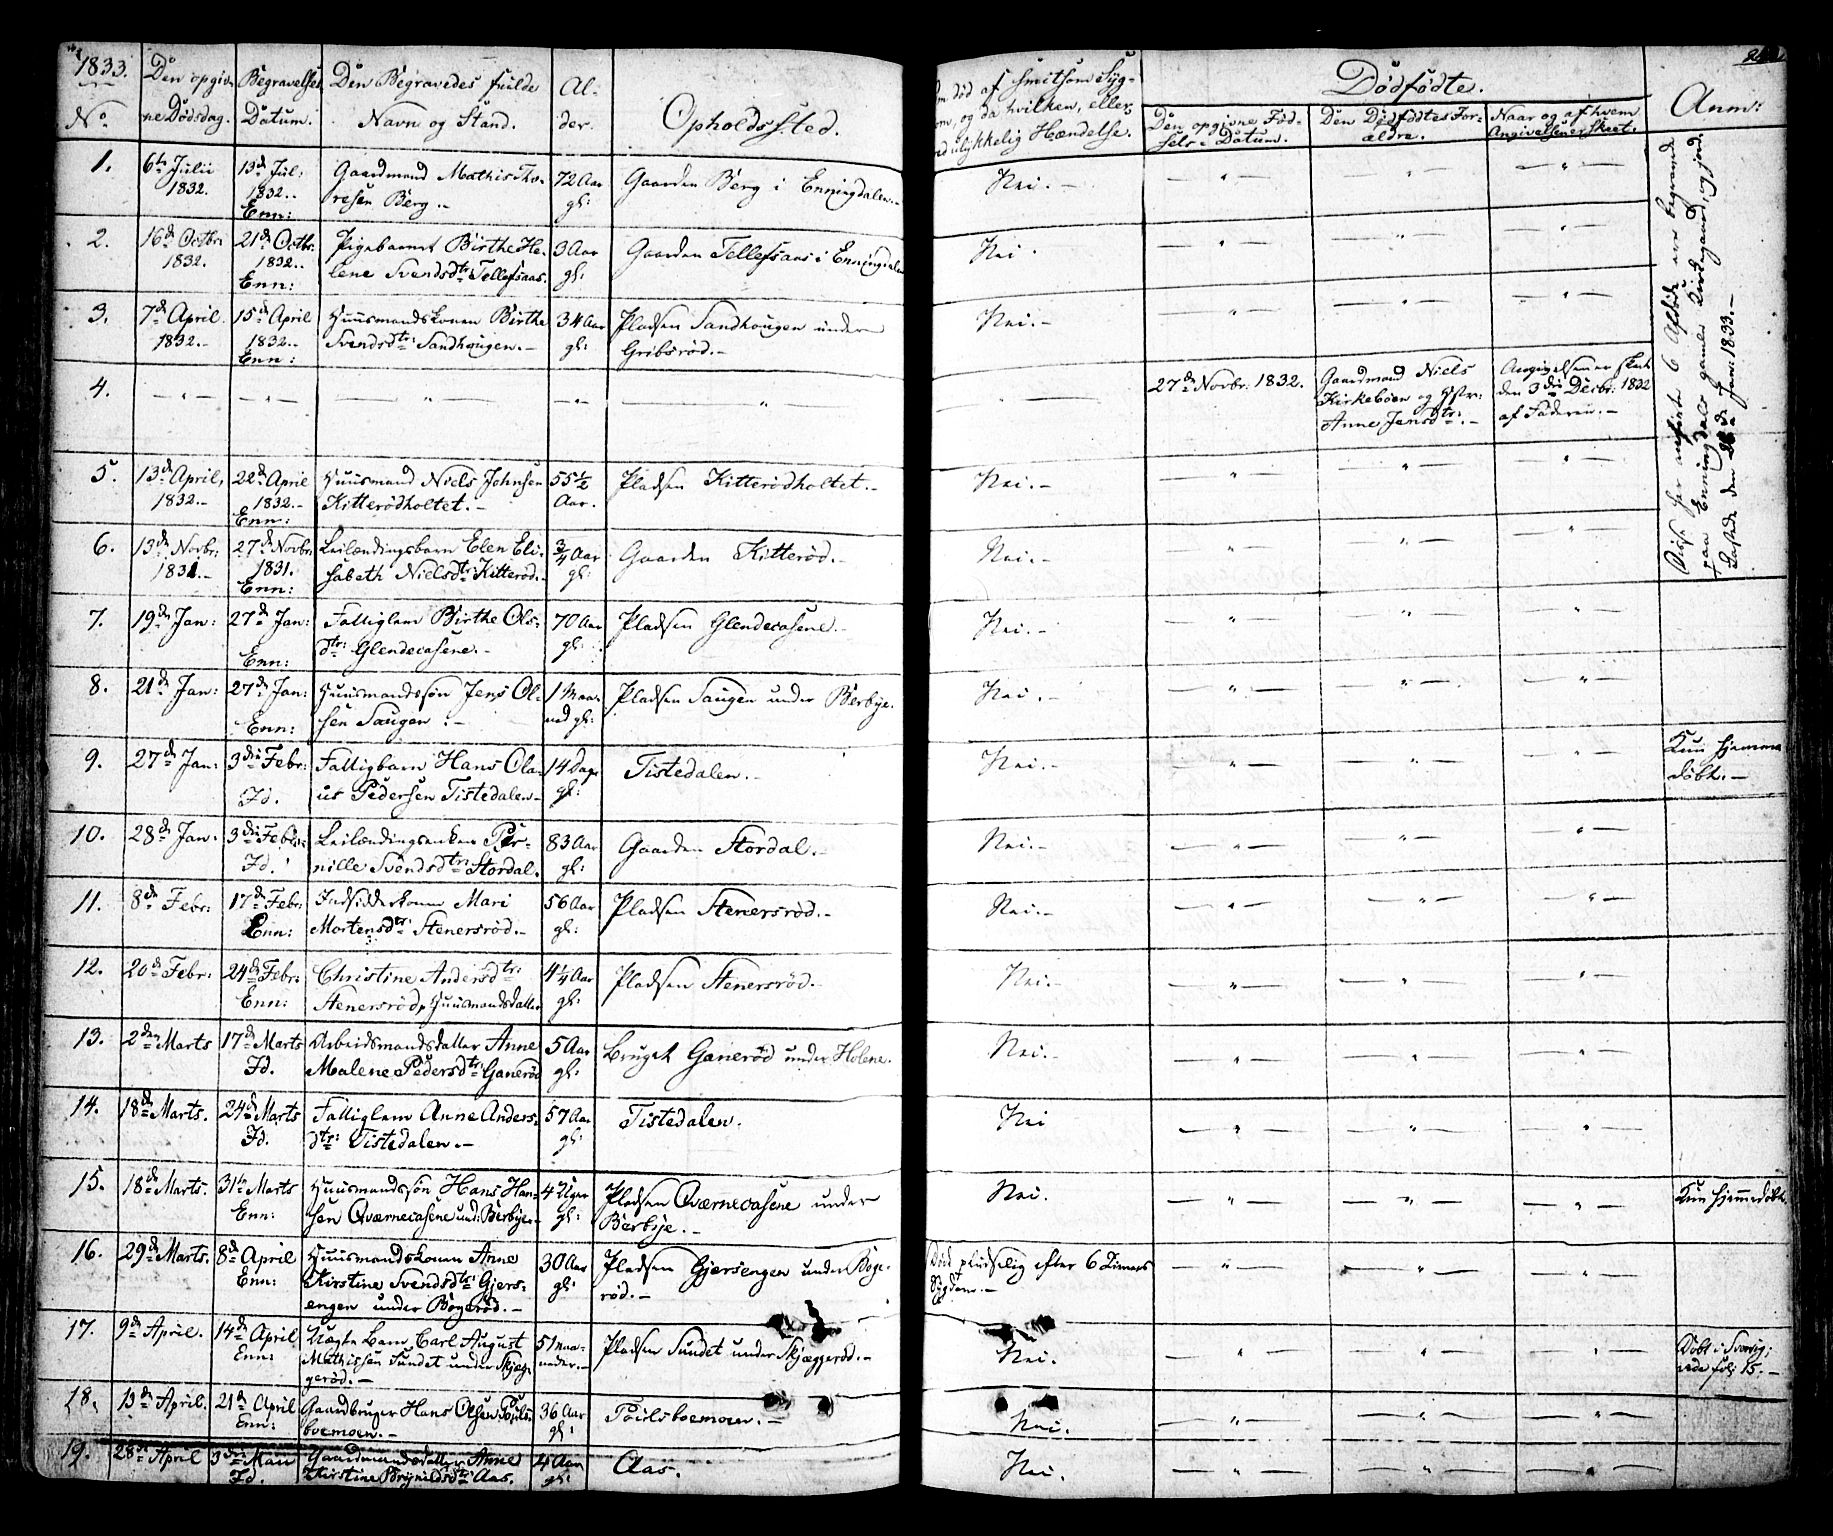 1833.
No
Den opgiv-
ne Dødsdag.
Begravelses
Datum.
Den Begravedes fulde
Navn og Stand.
Al-
der.
Opholdssted.
død af smitsom Syg-
og da hvilken, eller
ulykkelig Hændelse.
Dødfødte.
Den opgivne Fød-
sels-Datum.
Den Dødfødtes For-
ældre.
Naar og af hvem
Angivelsen er skeet.
Anm:
1.
6te Julii
1832.
13de Jul:
1832.
Enn:
Gaardmand Mathis Tho-
resen Berg.-
72 Aar
gl:
Gaarden Berg i Enningdalen.-
Nei.-
2.
16de Octbr:
1832.
21de Octbr.
1832.
Enn:
Pigebarnet Birthe He-
lene Svendsdtr: Tellefsaas.
3 Aar
gl:
Gaarden Tellefsaas i Enningdalen
Nei.
3.
7de April
1832.-
15de April
1832.-
Enn:
Huusmandskonen Birthe
Svendsdtr: Sandhougen.-
34 Aar
gl:
Pladsen Sandhougen under
Gribsrød.-
Nei.-
4.
27de Novbr: 1832.
Gaardmand Niels
Kirkebøen og Hstr:
Anne Jensdtr:.-
Angivelsen er skeet
den 3die Decbr: 1832
af Faderen.-
5.
13de April,
1832.-
22de April
1832.-
Enn:
Huusmand Niels Johnsen
Kitterødholtet.-
55 1/2
Aar.
Pladsen Kitterødholtet.-
Nei.-
6.
13de Novbr:
1831.-
27de Novbr:
1831.
Enn:
Leilændingsbarn Elen Eli-
sabeth Nielsdtr: Kitterød.-
3/4 Aar
gl:
Gaarden Kitterød.-
Nei.-
Disse her anførte 6 Afdøde ere begravede
paa Enningdals gamle Kirkegaard, og jord-
kastede den 28de Jan: 1833.-
7.
19de Jan:
27de Jan:
Enn:
Fattiglem Birthe Ols-
dtr: Glendecasene.-
70 Aar
gl:
Pladsen Glendecasene.-
Nei.-
8.
21de Jan:
27de Jan:
Enn:
Huusmandssøn Jens Ol-
sen Saugen.-
1 Maa-
ned gl:
Pladsen Saugen under Berbye.
Nei.-
9.
27de Jan:
3die Febr:
Id.
Fattigbarn Hans Ola-
us Pedersen Tistedalen-
14 Dage
gl:
Tistedalen.-
Nei.-
Kun hjemme
døbt.-
10.
28de Jan.
3die Febr:
Id.
Leilændingsenken Per-
nille Svendsdtr: Stordal.
83 Aar
gl:
Gaarden Stordal.-
Nei.-
11.
8de Febr:
17de Febr:
Enn:
Indsidderkonen Mari
Mortensdtr: Stenersrød.-
56 Aar
gl:
Pladsen Stenersrød.-
Nei.-
12.
20de Febr:
24de Febr:
Enn:
Christine Andersdtr:
Stenersrød, Huusmandsdatter
4 1/4 Aar
gl:
Pladsen Stenersrød.-
Nei.-
13.
2den Marts
17de Marts
Id.
Arbeidsmandsdatter Anne
Malene Pedersdtr: Ganerød
5 Aar
gl:
Bruget Ganerød under Holene.
Nei.-
14.
18de Marts.
24de Marts
Id.
Fattiglem Anne Anders-
dtr: Tistedalen.-
57 Aar
gl:
Tistedalen.
Nei
15.
18de Marts.
31te Marts
Enn:
Huusmandssøn Hans Han-
sen Qværnecasene und: Berbye.-
4 Uger
gl:
Pladsen Qværnecasene under
Berbye.-
Nei.
Kun hjemmedøbt.
16.
29de Marts.
8de April
Enn:
Huusmandskonen Anne
Kirstine Svendsdtr: Gjers-
engen under Bøgerød.-
30 Aar
gl:
Pladsen Gjersengen under Bøge-
rød.-
Død pludselig efter 6 Timers
Sygdom.-
17.
9de April.
14de April
Enn:
Uægte Barn Carl August
Mathissen Sundet under Skjæg-
gerød.-
5 Maa-
neder.-
Pladsen Sundet under Skjæggerød.-
Nei.
Døbt i Sverrig;
vide fol: 15.-
18.
13de April.
21de April
Enn:
Gaardbruger Hans Olsen Pouls-
boemoen.-
36 Aar
gl:
Poulsboemoen.-
Nei.
19.
28de April
3die Maii
Id.
Gaardmandsdatter Anne
Kirstine Brynildsdtr: Aas.
4 Aar
gl:
Aas.
Nei.